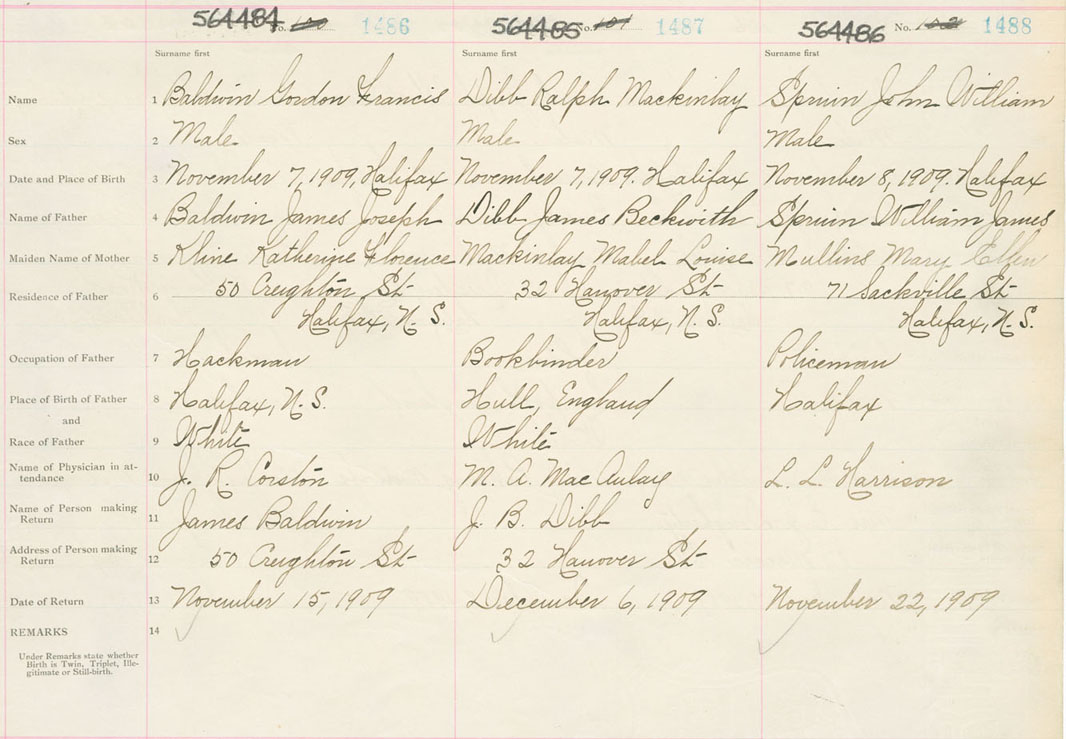 564484 No. 100 1486 564485 No. 101 1487 564486 No. 102 1488
Surname first Surname first Surname first
Name 1 Baldwin Gordon Francis Dibb Ralph Mackinlay Spruin John William
Sex 2 Male Male Male
Date and Place of Birth 3 November 7, 1909, Halifax November 7, 1909. Halifax November 8, 1909. Halifax
Name of Father 4 Baldwin James Joseph Dibb James Beckwith Spruin William James
Maiden Name of Mother 5 Kline Katherine Florence Mackinlay Mabel Louise Mullins Mary Ellen
Residence of Father 6 50 Creighton St 32 Hanover St 71 Sackville St
Halifax, N. S. Halifax, N. S. Halifax, N. S.
Occupation of Father 7 Hackman Bookbinder Policeman
Place of Birth of Father 8 Halifax, N. S. Hull, England Halifax
and
Race of Father 9 White White
Name of Physician in at-
tendance 10 J. R. Corston M. A. MacAulay L. L. Harrison
Name of Person making
Return 11 James Baldwin J. B. Dibb
Address of Person making
Return 12 50 Creighton St 32 Hanover St
Date of Return 13 November 15, 1909 December 6, 1909 November 22, 1909
REMARKS 14
Under Remarks state whether
Birth is Twin, Triplet, Ille-
gitimate or Still-birth.